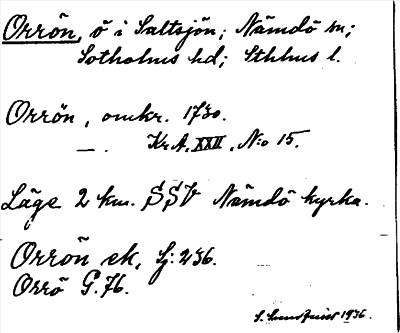 Orrön, ö i Saltsjön; Nämdö sn;
Sotholms hd; Sthlms l.
Orrön, omkr. 1730.
—. Kr A, XXII, N:o 15.
Läge 2 km. SSV Nämdö kyrka.
Orrön ek, Sj: 236.
Orrö G.76.
S. 1936.